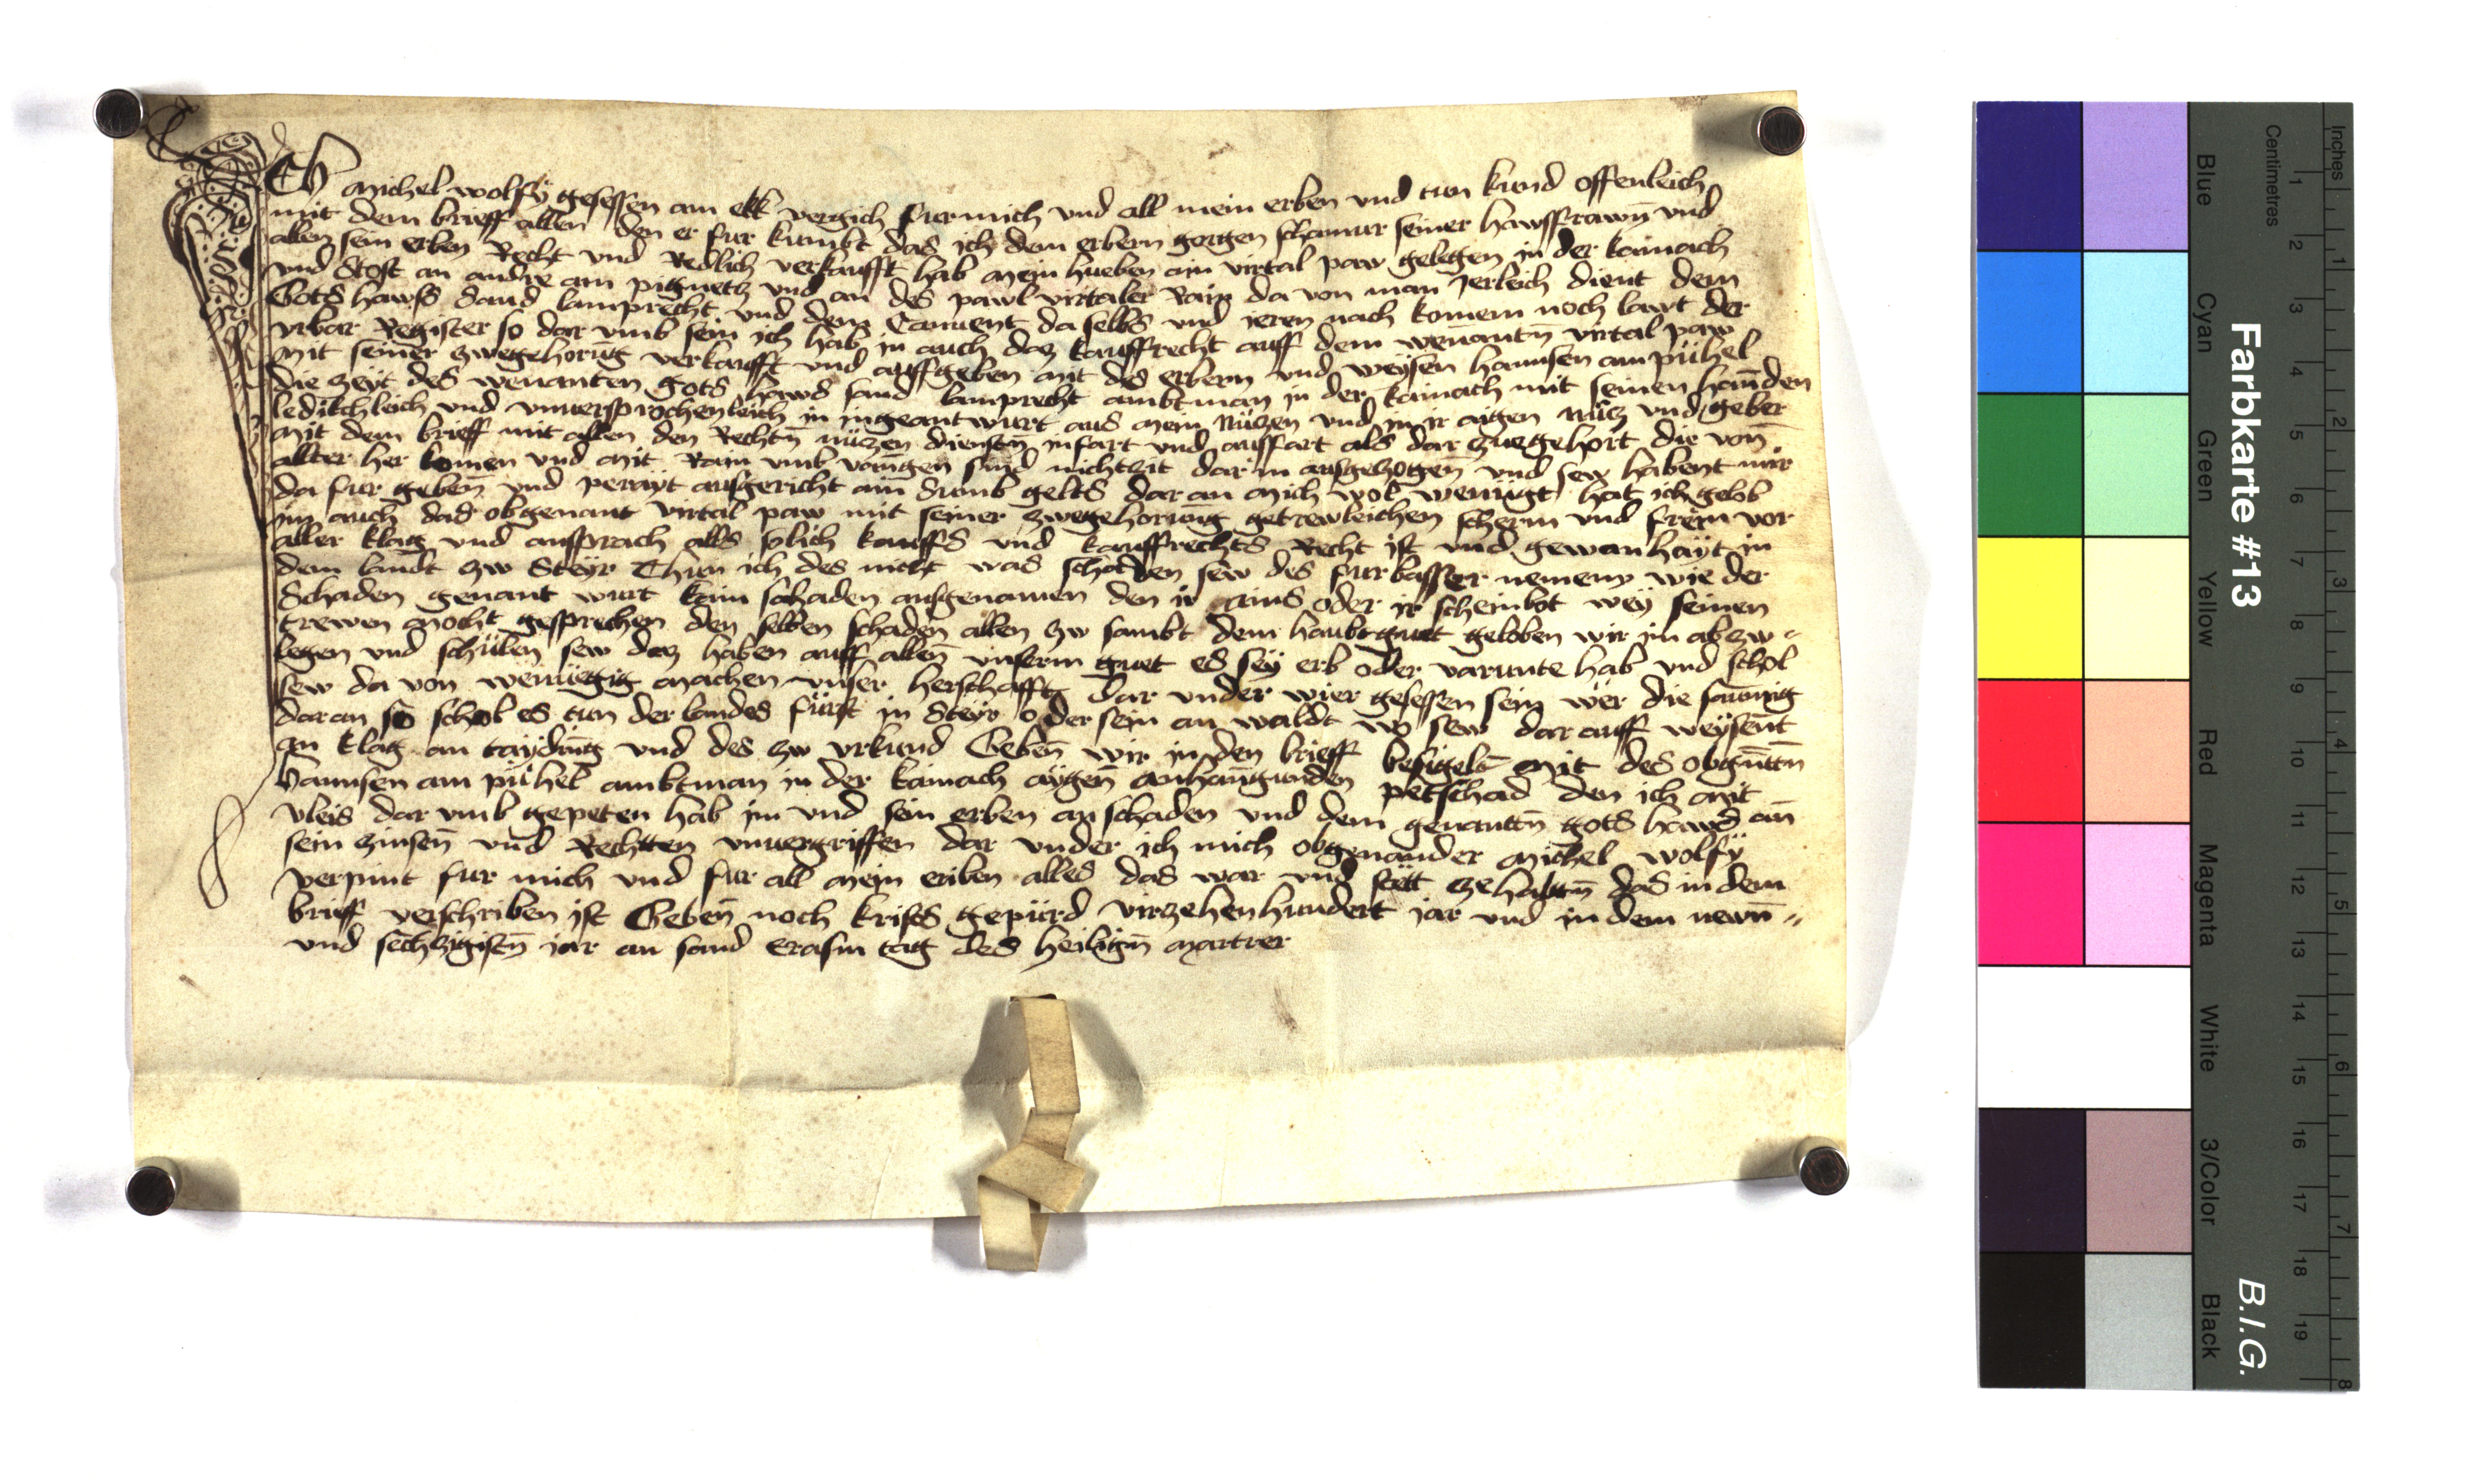 Ich michel wolfÿ gesessen am ekk vergich fur mich und all mein erben und tun kund offenleich
mit dem brieff allen den er fur kumbt das ich dem erbern gorgen schamur seiner hawssfrawn̄ vnd
allen sein erben Recht vnd Redlich verkaufft hab mein hueben ain virtal paw gelegen in der kainach
vnd stost an andre am pigmetz vnd an des pawl virtaler Rain da von man Jerleich dient dem
Gots hawss sand lamprecht vnd dem Conuent da selbs vnd ieren nach komem noch lawt der
vrbar Register so dar vmb sein ich hab in auch daz kauffrecht auff dem wenantn̄ virtal paw
mit seiner zwegehorūg verkaufft vnd auffgeben mit des erbern vnd weÿsen hannsen am pühel
die zeÿt des wenanten gots haws sand lamprecht ambtman in der kainach mit seinen hannden
ledikchleich vnd vnuersprochenleich in ingeantwurt aus mein nüczen vnd in ir aigen nücz vnd geber
mit dem brieff mit allen den Rechtn̄ nüczen diensten infart vnd auffart als dar zuegehort die von̄
allter her komen vnd mit Rain vmb vanngen sind nichtzit dar in ausgezogen̄ vnd sew habent mir
da fur geben̄ vnd perayt ausgericht ain̄ Sumb gelts dar an mich wol wenügt hat ich gelob
jm auch das obgenant virtal paw mit seiner zwegehorūng getrewleichen scherm vnd freim vor
aller klag vnd anssprach alls solich kauffs vnd kauffrechts Recht ist vnd gewanhayt in
dem lanndt zw Steyr Thun ich des nicht was schadden sew des furbasser nemenn wie der
Schaden genant wurt kain schaden ausgenomen den ir ains oder ir scheinbot weÿ seinen
trewen mocht gesprechen den selben schaden allen zw sambt dem haubtguet geloben wir im ab zw =
legen vnd schüllen sew daz haben auff allen̄ vnserm guet es sey erb oder varunte hab vnd schol
sew da von wenuegig machen vnser herschafft dar vnder wier gesessen sein wer die saumig
dar an so schol es tun der landes fürst in Steyr oder sein an waldt wo sew dar auff weÿsent
an klag an taÿdn̄ig vnd des zw vrkund Geben̄ wir in den brieff besigelt mit des obgn̄ttn̄
hannsen am pühel ambtman in der kainach aÿgen anhangunden petschad den ich mit
vleis dar vmb gepeten hab im vnd sein erben an schaden vnd dem genanttn̄ gots haws an
sein zinsen̄ vnd Rechtten vnuergriffen dar vnder ich mich obgenander michel wolfÿ
verpint fur mich vnd fur all mein eriben alles das war vnd stett zehaltn̄ das in dem
brieff verschriben ist Geben̄ noch krists gepürd virzehenhundert jar vnd in dem newn̄ =
vnd sechzigistn̄ jar an sand Erasm tag des heilign̄ martrer
Inches
Centimetres
1 2 3 4 5 6 7 8 9 10 11 12 13 14 15 16 17 18 19
1 2 3 4 5 6 7 8
Farbkarte #13
B.I.G.
Blue
Cyan
Green
Yellow
Red
Magenta
White
3/Color
Black